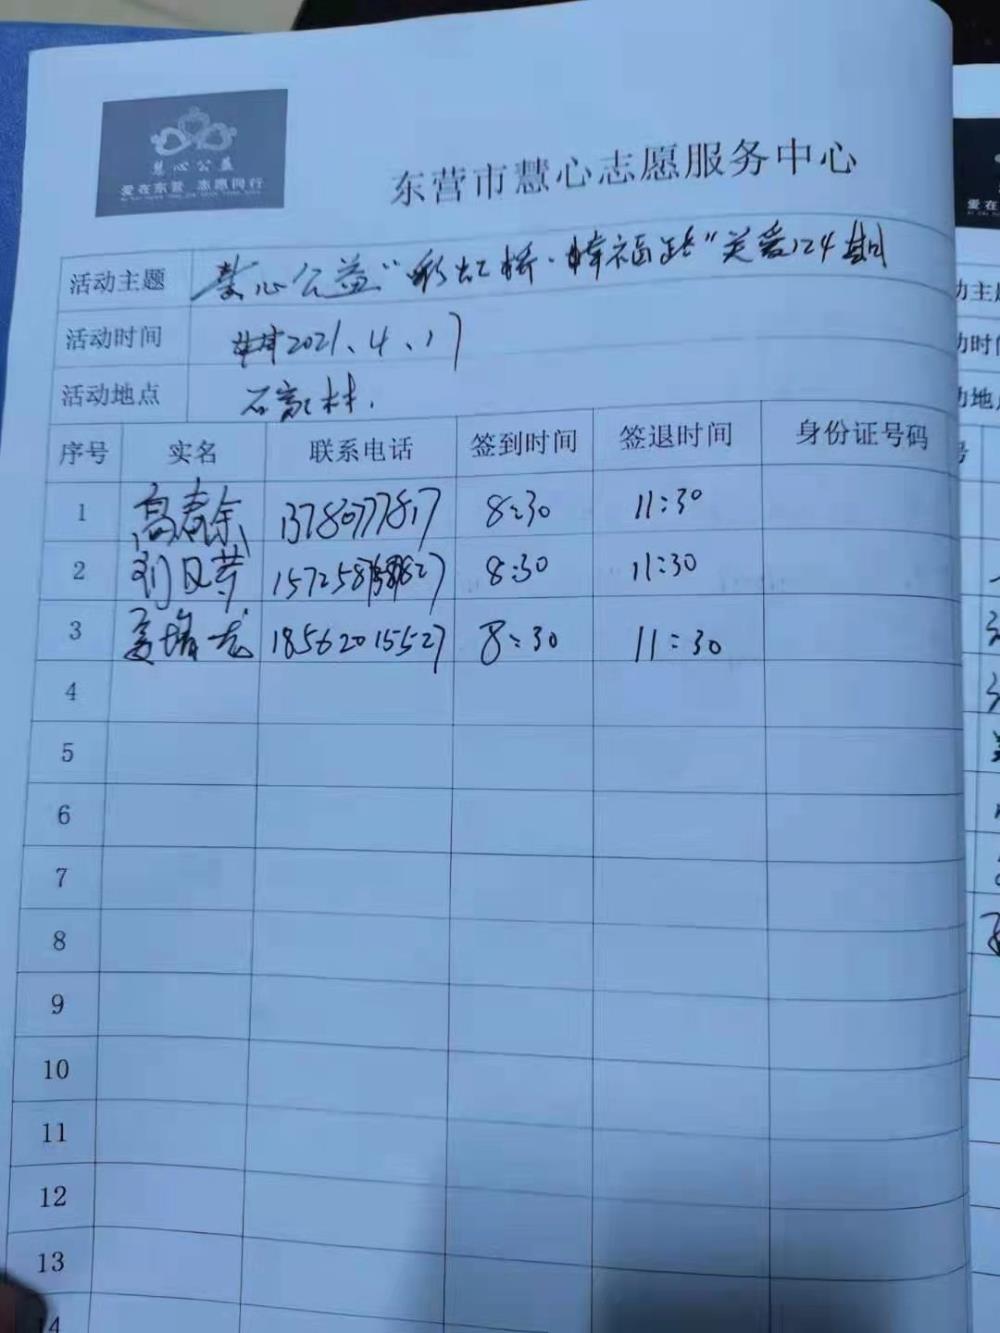 慧心公益
爱在东营 志愿同行
东营市慧心志愿服务中心
活动主题 慧心公益"彩虹桥·幸福路"关爱124期
活动时间 2021、4、17
活动地点 石家村.
序号 实名 联系电话 签到时间 签退时间 身份证号码
1 高春余 13780777817 8:30 11:30
2 8:30 11:30
3 18562015527 8:30 11:30
4
5
6
7
8
9
10
11
12
13
14
爱在
动主题
动时间
动地点
号